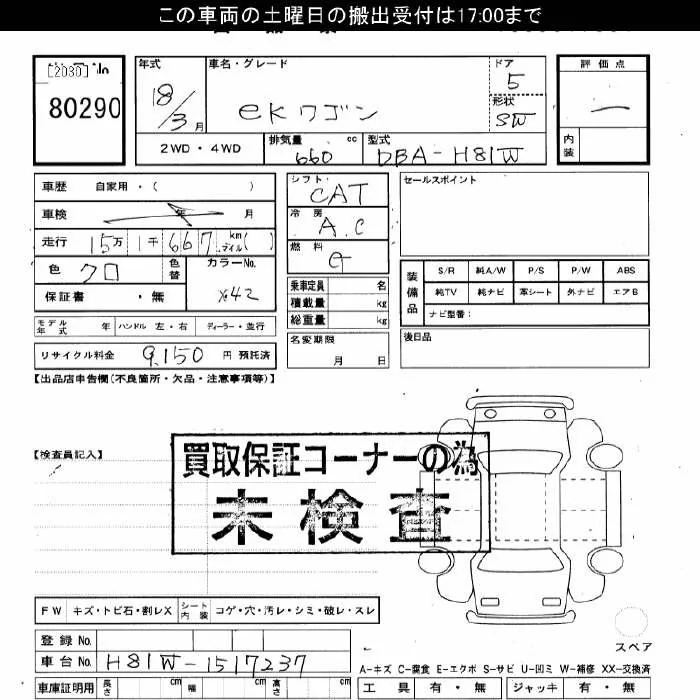 この車両の土曜日の搬出受付は17:00まで
[2030]
80290
年式
18/3月
車名・グレード
eKワゴン
ドア
5
形状
SW
評価点
一
内装
2WD・4WD
排気量
660
cc
型式
DBA-H81W
車歴 自家用・( )
車検 年 月
走行 15万 1千 667 km マイル( )
色 クロ
色替
カラーNo.
X42
保証書 ・無
モデル年式 年 ハンドル 左・右 ディーラー・並行
リサイクル料金 9,150 円 預託済
シフト
CAT
冷房
A.C
燃料
G
乗車定員 名
積載量 kg
総重量 kg
名変期限
月 日
セールスポイント
装備品
S/R 純A/W P/S P/W ABS
純TV 純ナビ 革シート 外ナビ エアB
ナビ型番:
後日品
【出品店申告欄(不良箇所・欠品・注意事項等)】
【検査員記入】
買取保証コーナーの為
未検査
FW キズ・トビ石・割レX シート内装 コゲ・穴・汚レ・シミ・破レ・スレ
登録No.
車台No. H81W-1517237
車庫証明用 長さ cm 幅 cm 高さ cm
スペア
A-キズ C-腐食 E-エクボ S-サビ U-凹ミ W-補修 XX-交換済
工具 有・無 ジャッキ 有・無